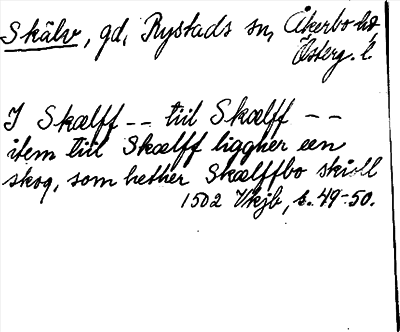 Skälv, gd, Rystads sn, Åkerbo hd
Österg. l.
I Skælff -- tiil Skælff --
item tiil Skælff liggher een
skog, som hether Skælffbo skioll
1502 Vkjb, s. 49-50.